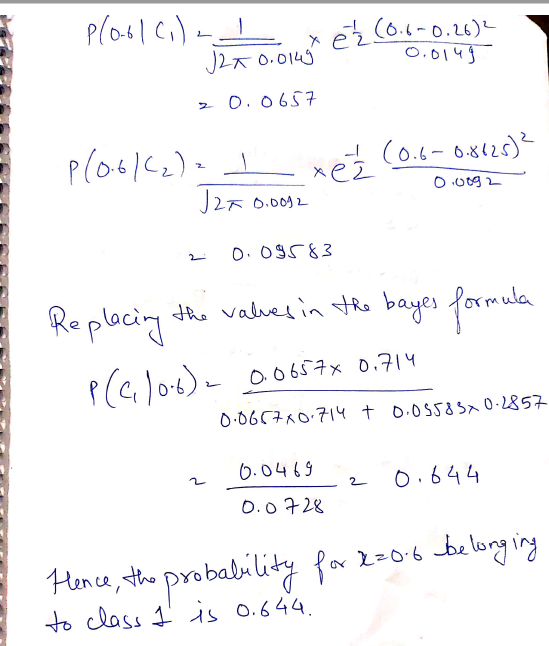 P(0.6|C₁) = 1/√2π 0.0149 × e^-1/2 (0.6-0.26)²/0.0149
= 0.0657
P(0.6|C₂) = 1/√2π 0.0092 × e^-1/2 (0.6-0.8625)²/0.0092
= 0.09583
Replacing the values in the bayes formula
P(C₁|0.6) = 0.0657× 0.714/0.0657×0.714 + 0.09583×0.2857
= 0.0469/0.0728 = 0.644
Hence, the probability for x=0.6 belonging
to class 1 is 0.644.